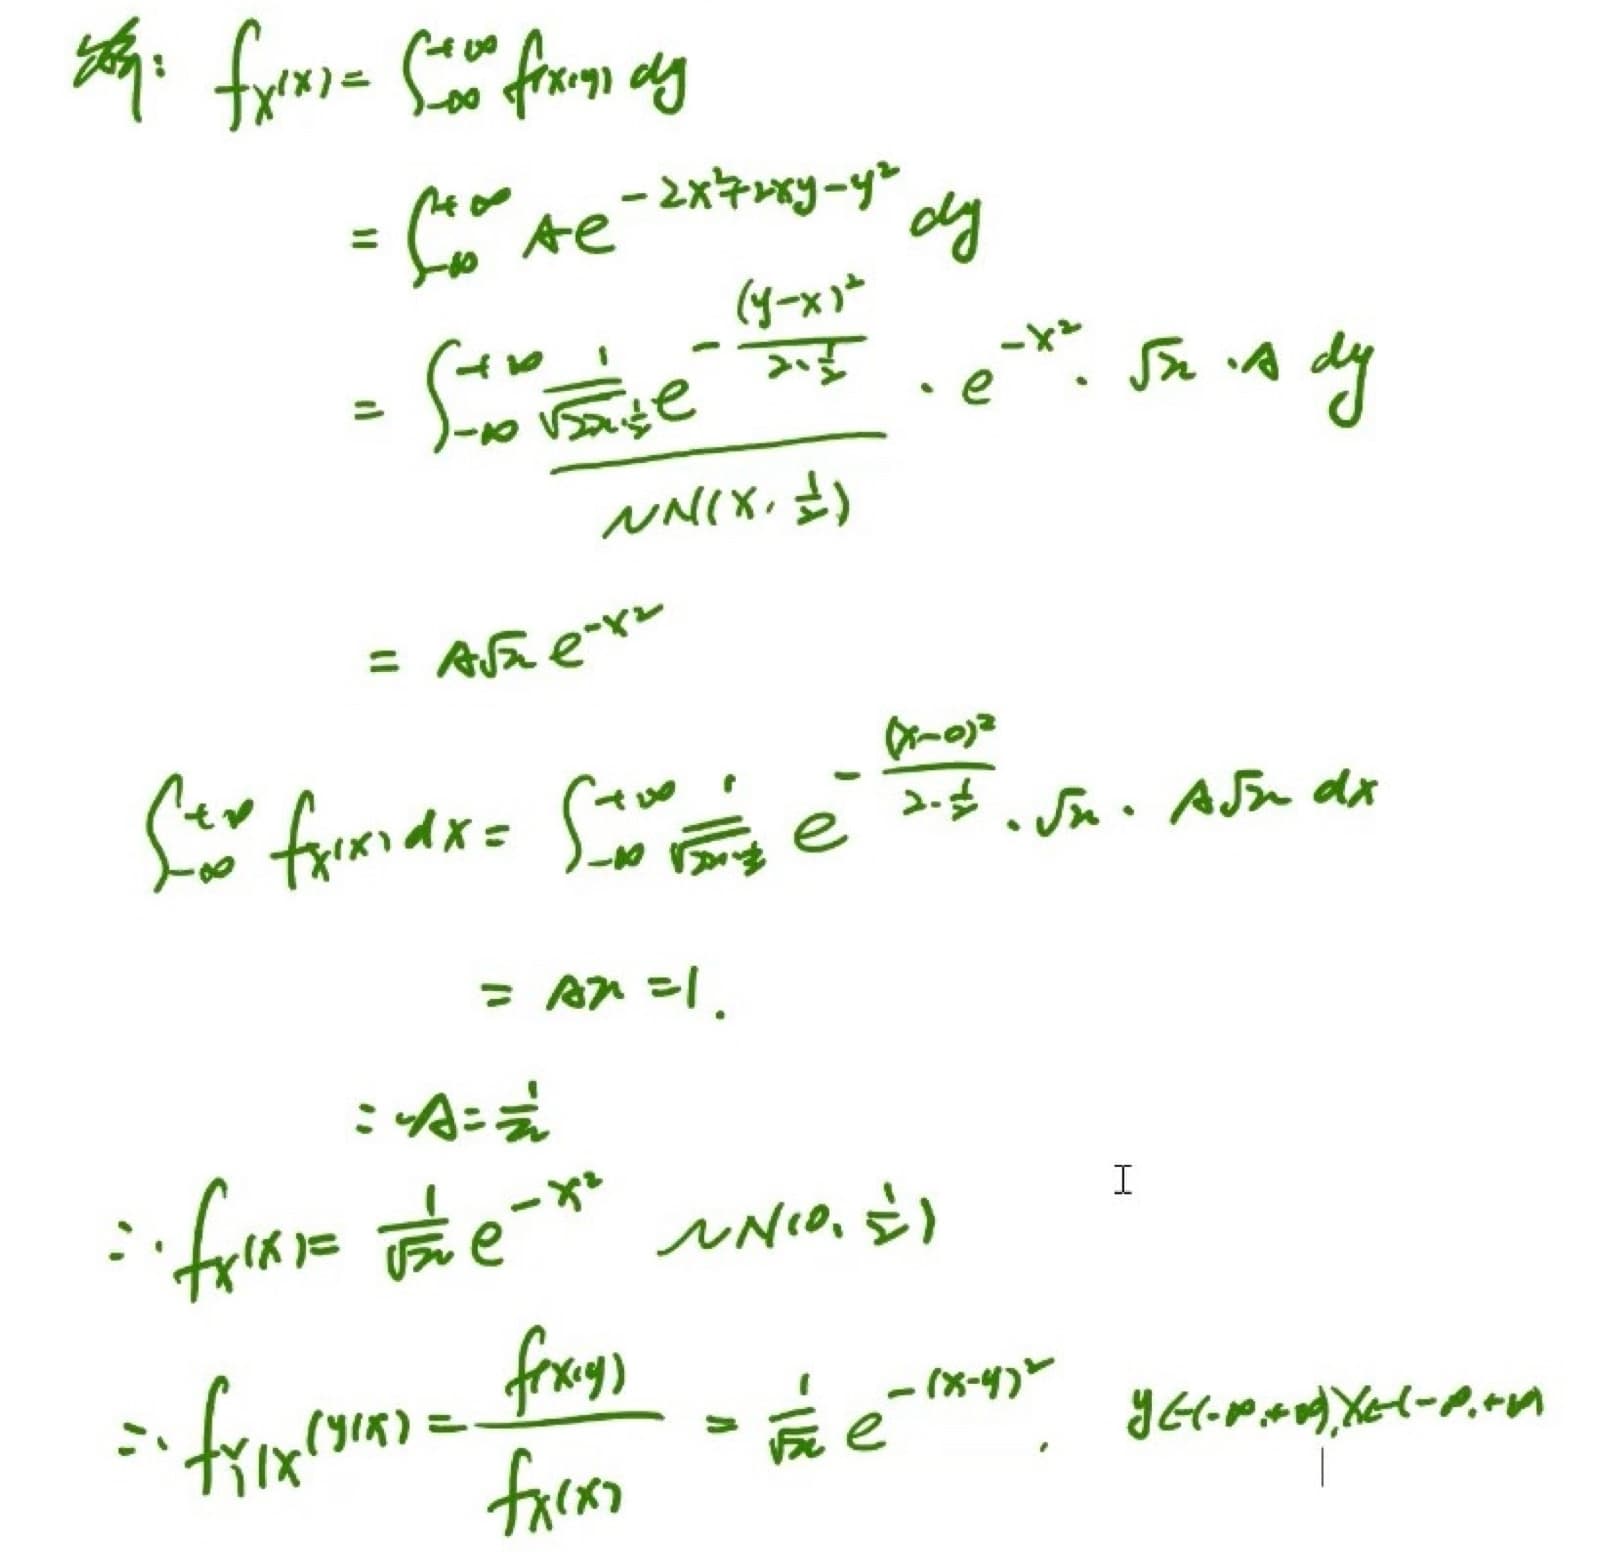 解: f_X(x) = ∫_{-∞}^{+∞} f(x,y) dy
= ∫_{-∞}^{+∞} A e^{-2x²+2xy-y²} dy
= ∫_{-∞}^{+∞} \frac{1}{\sqrt{2π·\frac{1}{2}}} e^{-\frac{(y-x)²}{2·\frac{1}{2}}} · e^{-x²} · √π · A dy
~N(x, \frac{1}{2})
= A√π e^{-x²}
∫_{-∞}^{+∞} f_X(x) dx = ∫_{-∞}^{+∞} \frac{1}{\sqrt{2π·\frac{1}{2}}} e^{-\frac{(x-0)²}{2·\frac{1}{2}}} · √π · A√π dx
= Aπ = 1.
∴ A = \frac{1}{π}
∴ f_X(x) = \frac{1}{√π} e^{-x²} ~N(0, \frac{1}{2})
∴ f_{Y|X}(y|x) = \frac{f(x,y)}{f_X(x)} = \frac{1}{√π} e^{-(x-y)²}. y∈(-∞,+∞), x∈(-∞,+∞)